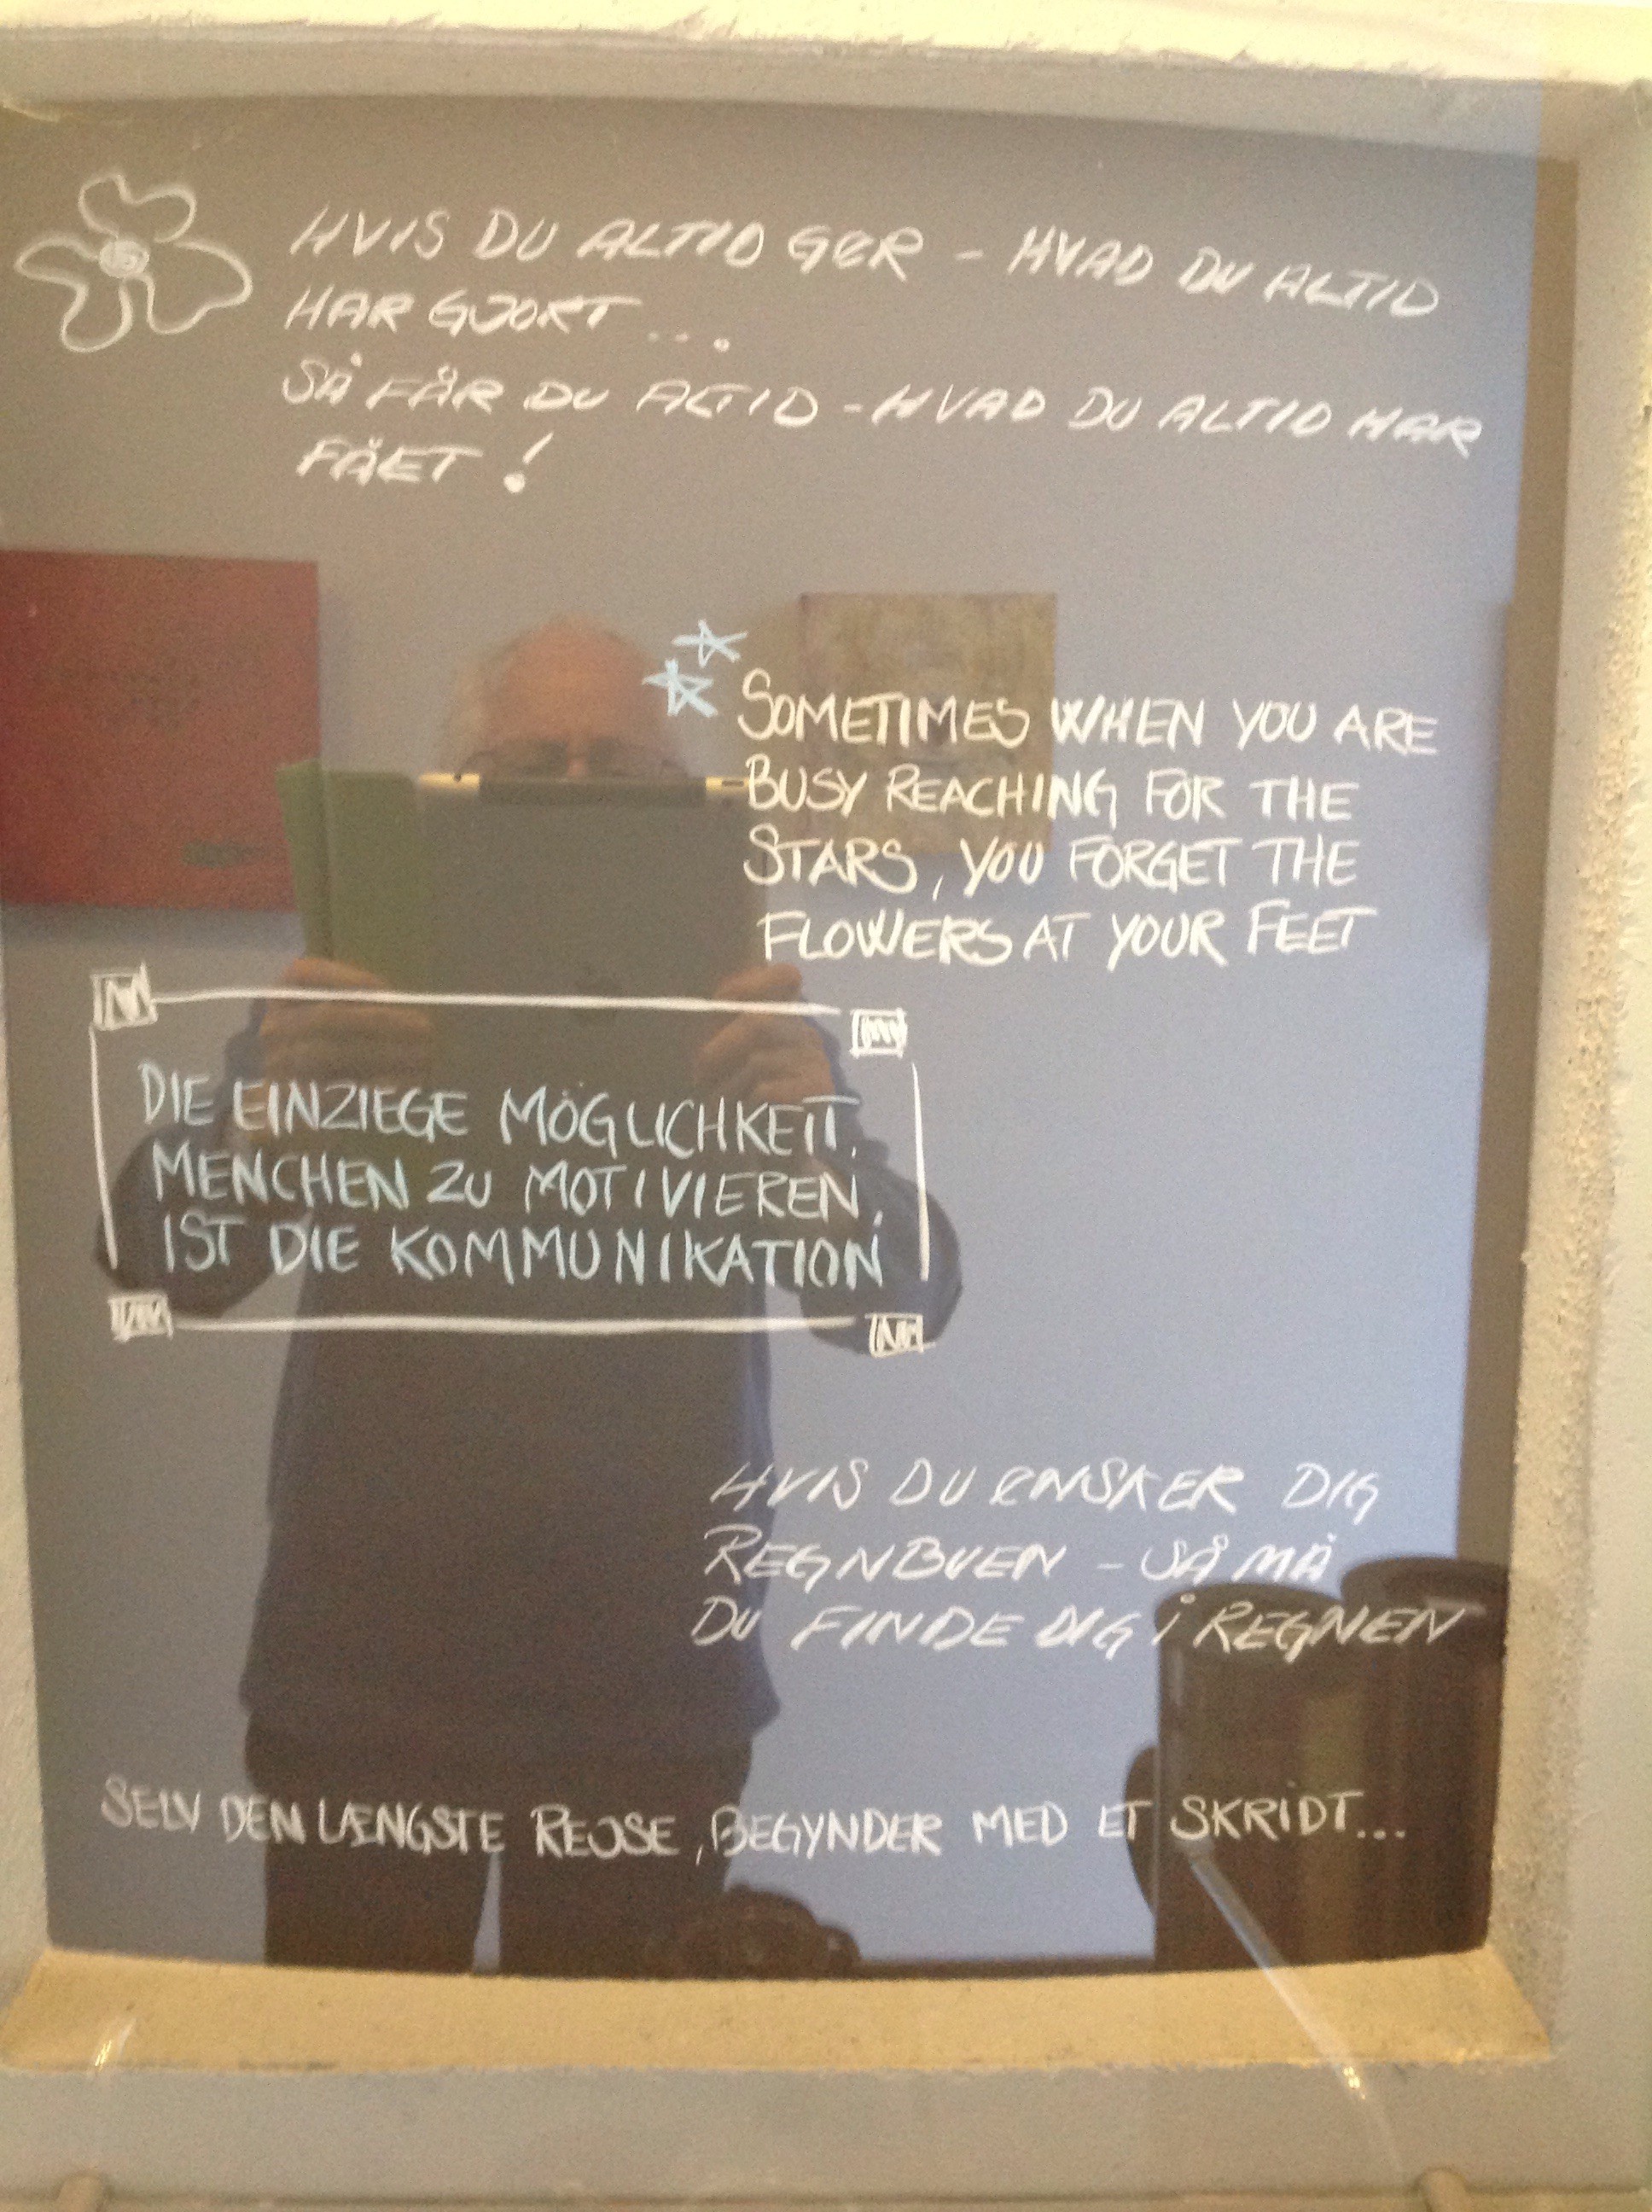 HVIS DU ALTID GØR - HVAD DU ALTID
HAR GJORT ....
SÅ FÅR DU ALTID - HVAD DU ALTID HAR
FÅET !
SOMETIMES WHEN YOU ARE
BUSY REACHING FOR THE
STARS, YOU FORGET THE
FLOWERS AT YOUR FEET
DIE EINZIEGE MÖGLICHKEIT
MENCHEN ZU MOTIVIEREN,
IST DIE KOMMUNIKATION
HVIS DU ØNSKER DIG
REGNBUEN - SÅ MÅ
DU FINDE DIG I REGNEN
SELV DEN LÆNGSTE REJSE, BEGYNDER MED ET SKRIDT...